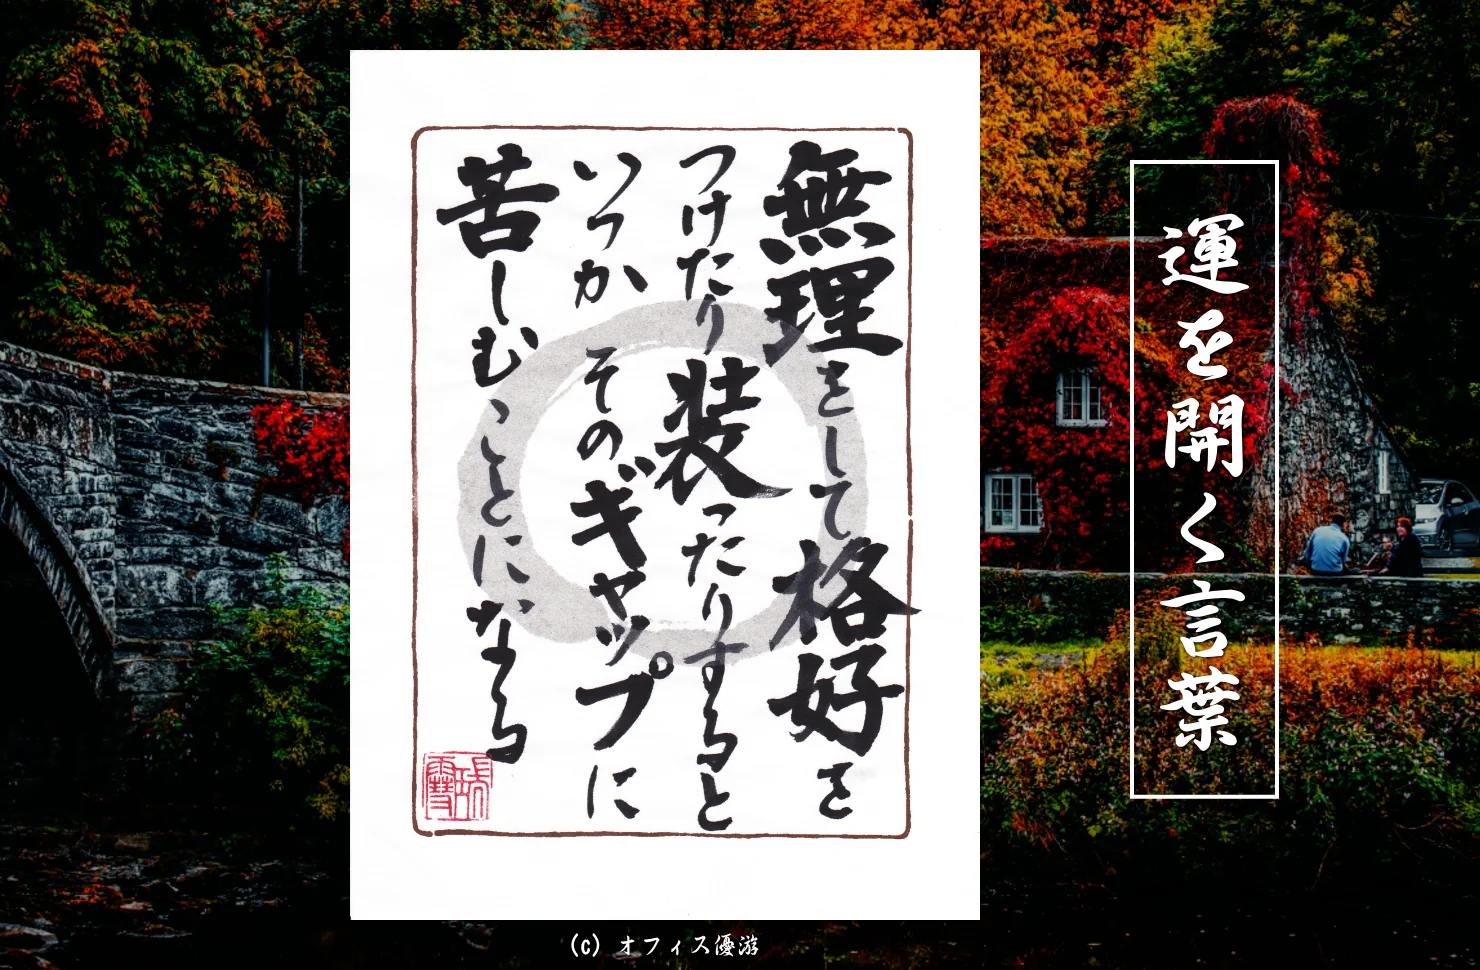 無理をして格好を
つけたり装ったりすると
いつか そのギャップに
苦しむことになる
運を開く言葉
(c) オフィス優游